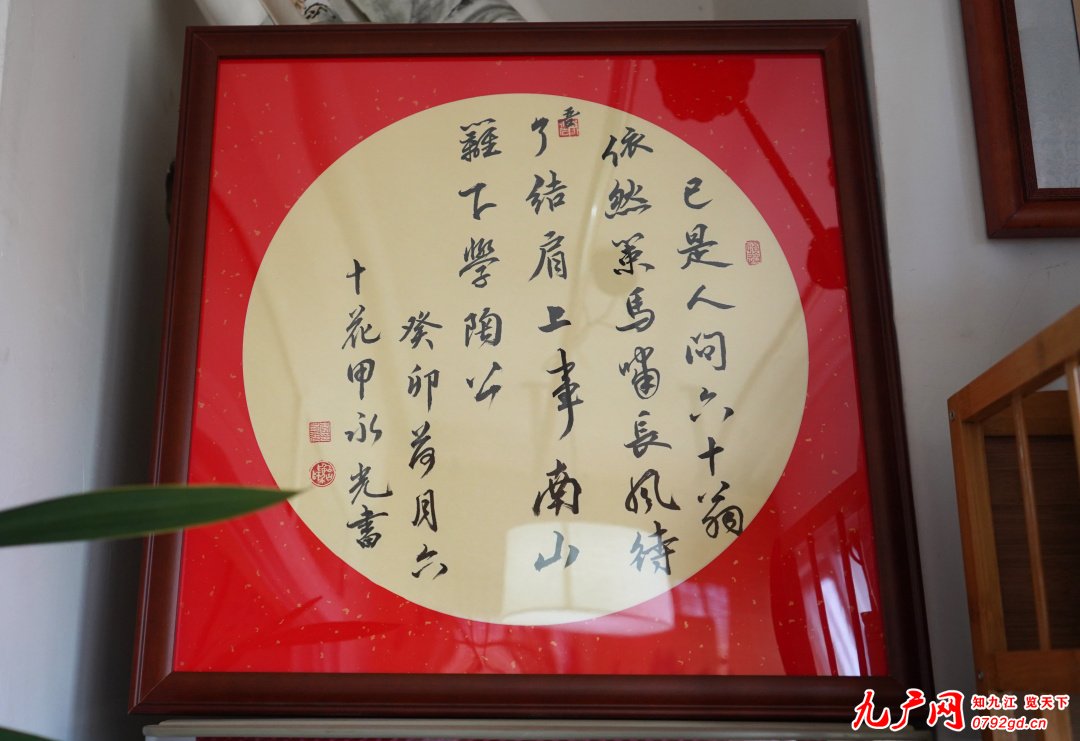 已是人间六十翁
依然策馬嘯長風待
吾
了结肩上事南山
籬下學陶公
癸卯荷月六
十花甲永光書
九广网
知九江 览天下
0792gd.cn